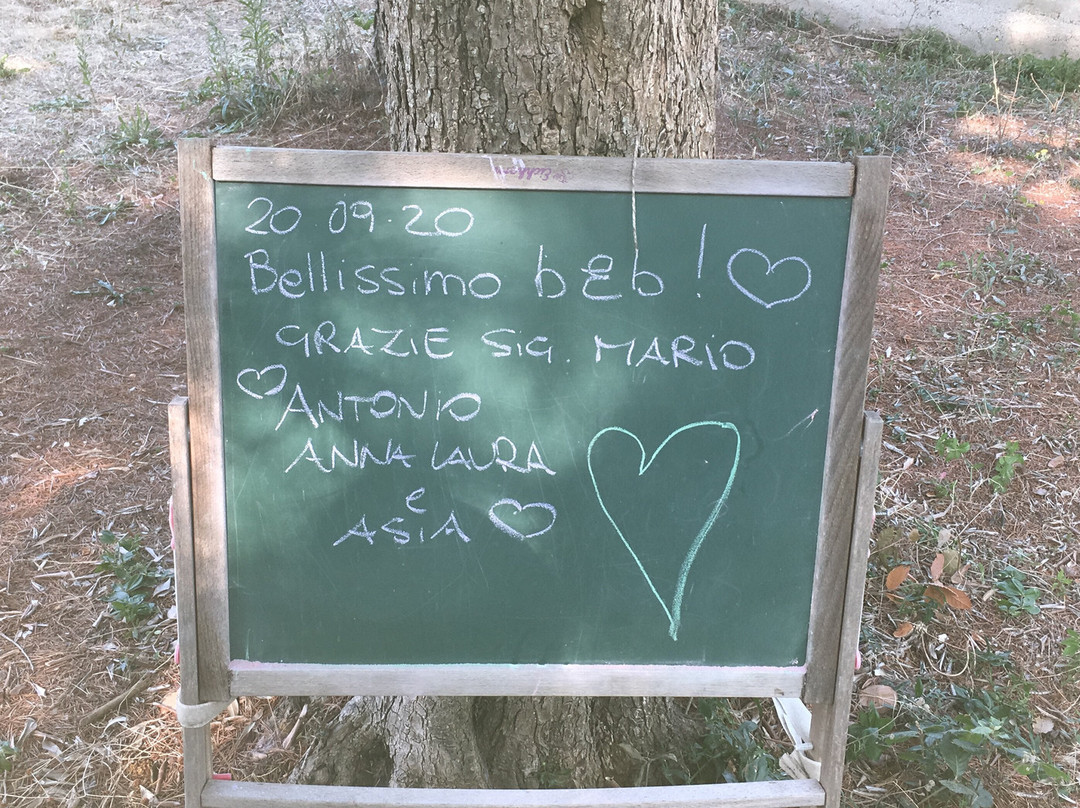 20.09.20
Bellissimo b&b!
GRAZIE SiG. MARIO
ANTONIO
ANNA LAURA
e
ASIA